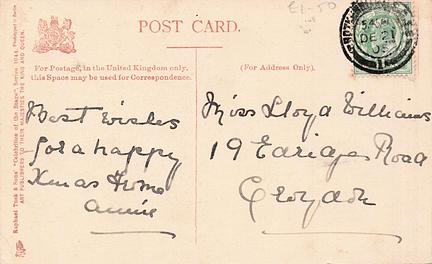 £1-50
POST CARD.
For Postage in the United Kingdom only,
this Space may be used for Correspondence.
(For Address Only).
Best Wishes
for a happy
Xmas from
Annie
Miss Lloyd Williams
19 Road
Croydon
DE 21
Raphael Tuck & Sons' "Celebrities of the Stage", Series
ART PUBLISHERS TO THEIR MAJESTIES THE KING AND QUEEN.